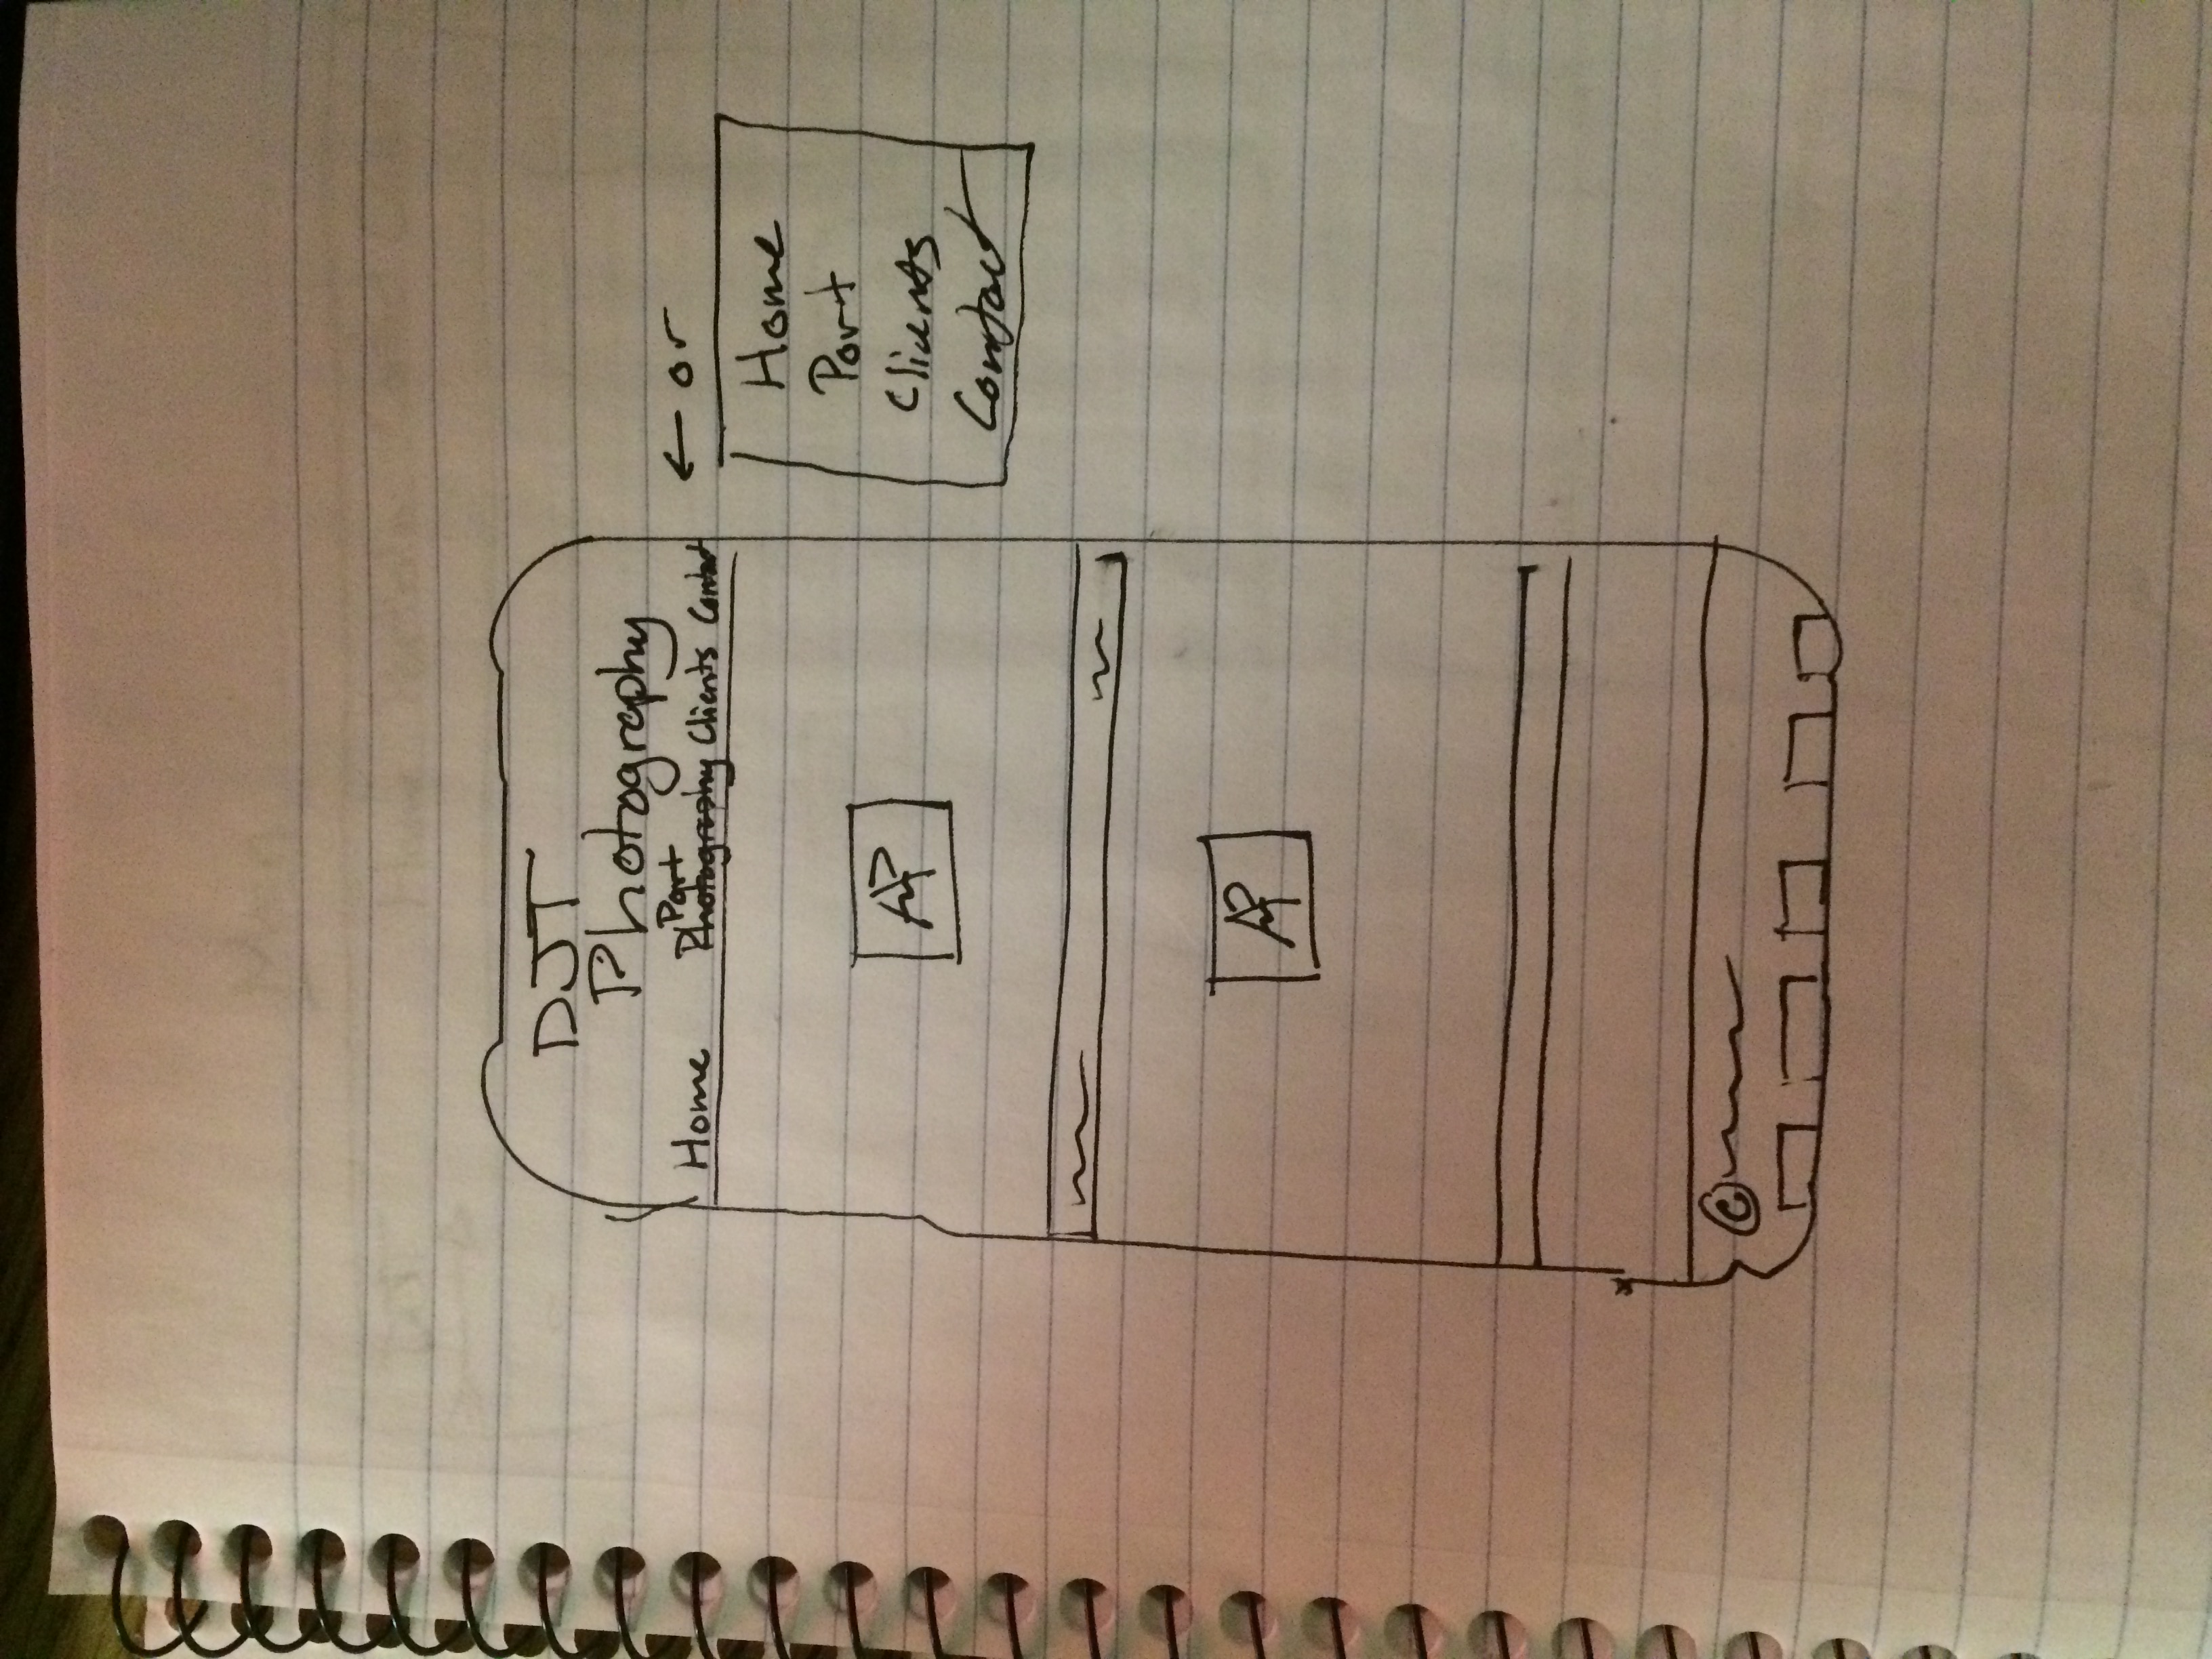 DJT
Photography
Port
Home Photography Clients Contact
← or
Home
Port
Clients
Contact
AP
AP
©